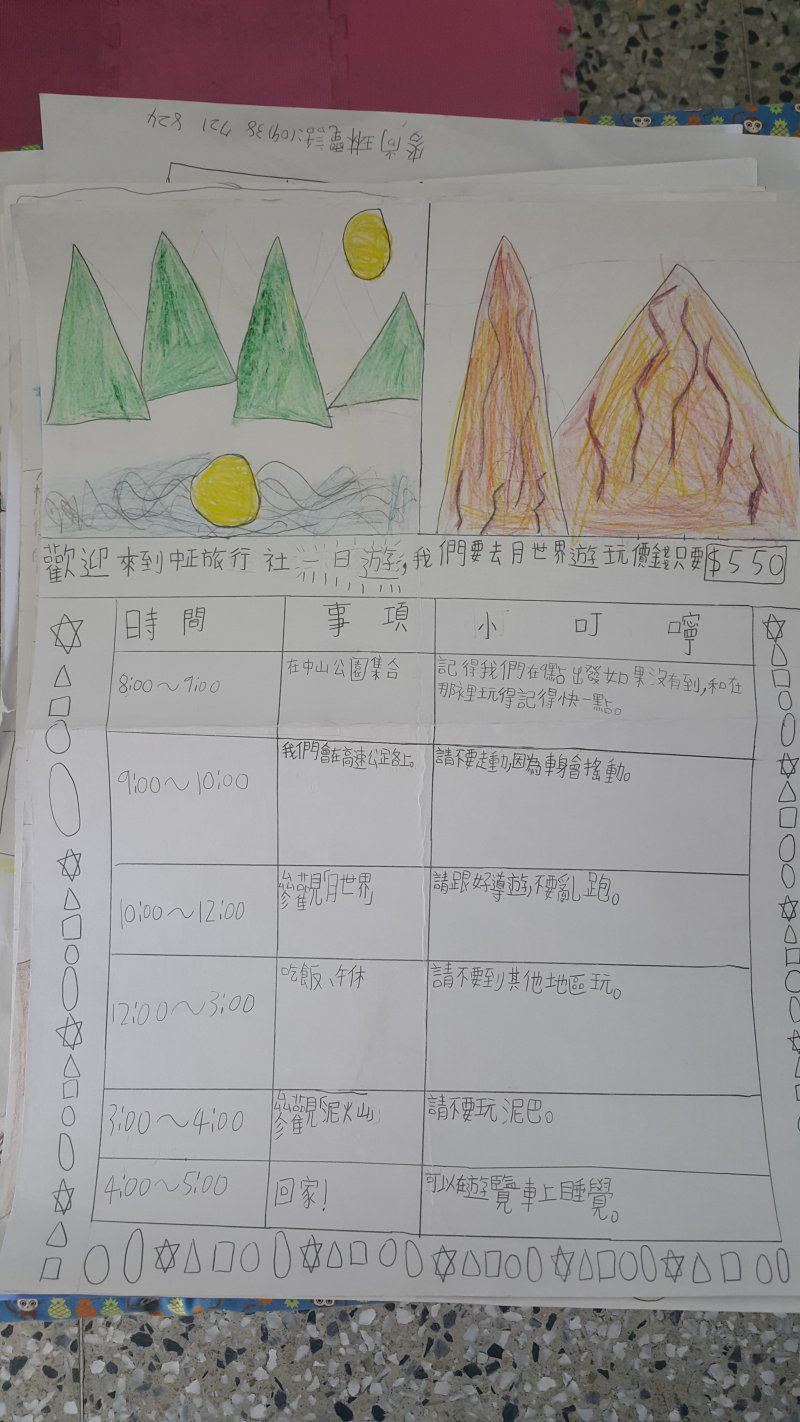 電話:(09)38 721 824
歡迎來到中正旅行社一日遊,我們要去月世界遊玩價錢只要$550
時間 事項 小叮嚀
8:00～9:00 在中山公園集合 記得我們在9點出發如果沒有到,和在
那裡玩得記得快一點。
9:00～10:00 我們會在高速公路上。 請不要走動,因為車身會搖動。
10:00～12:00 參觀「月世界」 請跟好導遊,不要亂跑。
12:00～3:00 吃飯、午休 請不要到其他地區玩。
3:00～4:00 參觀「泥火山」 請不要玩泥巴。
4:00～5:00 回家! 可以在遊覽車上睡覺。